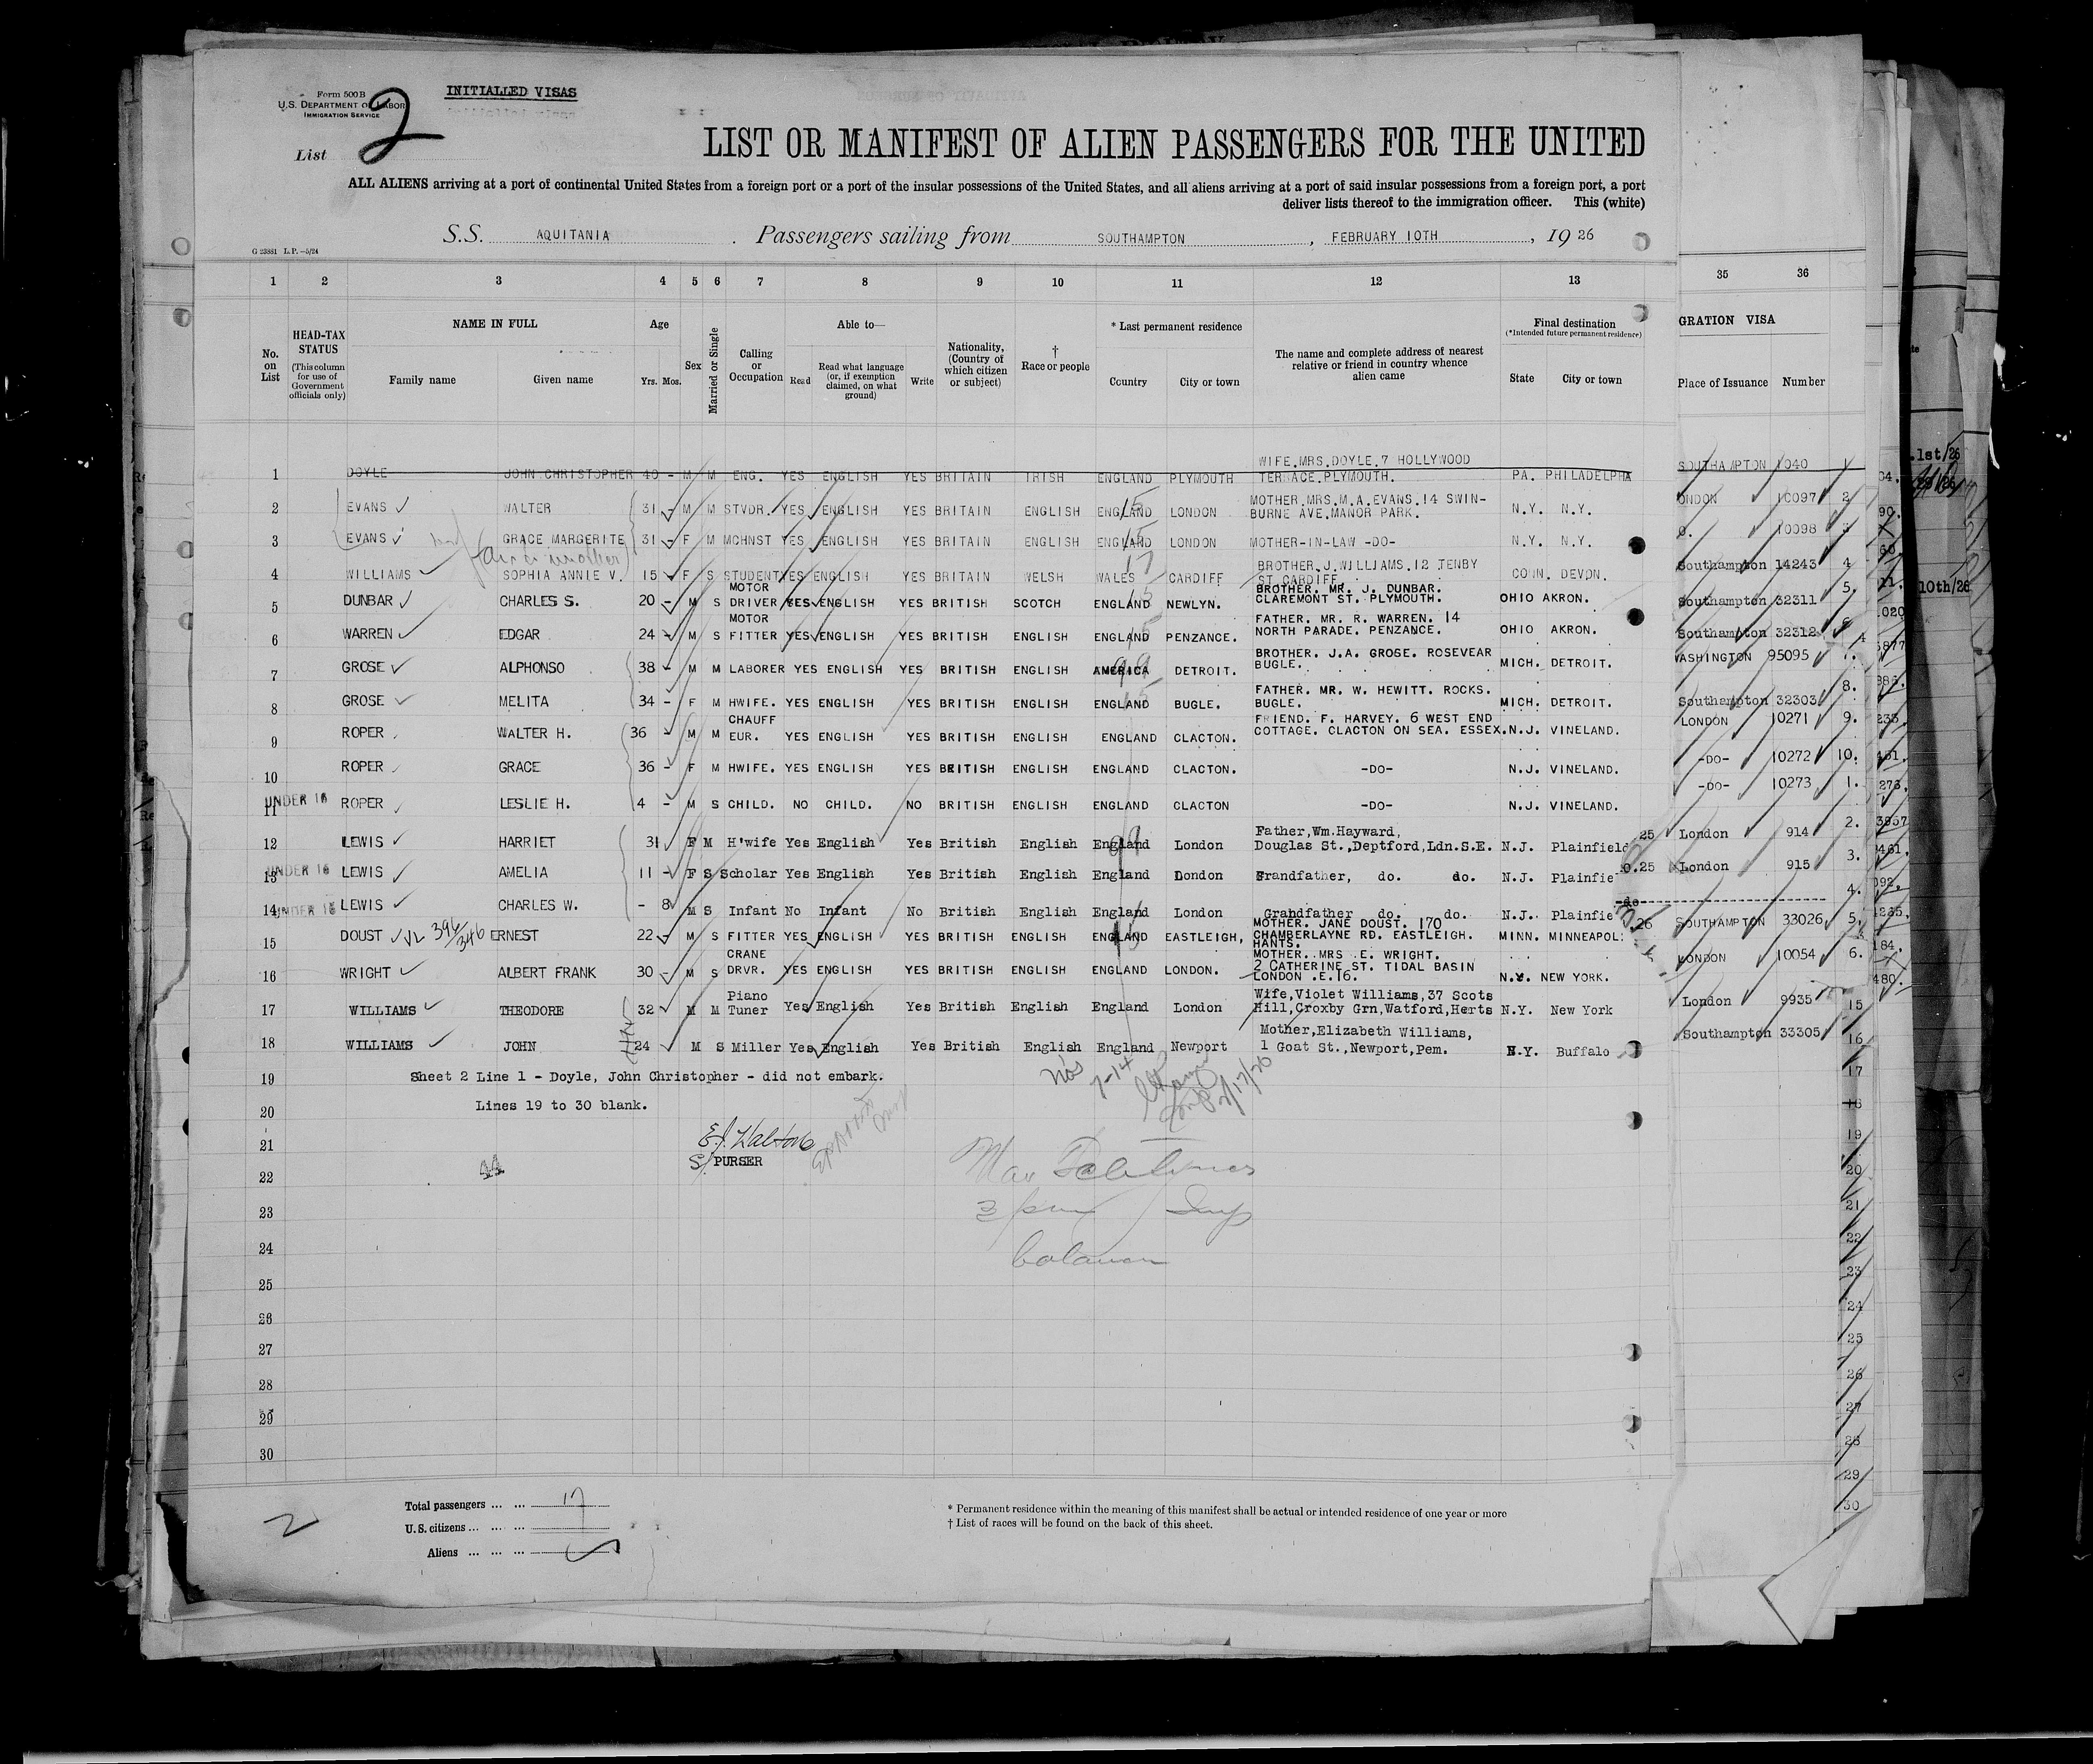 Form 500B
U.S. DEPARTMENT OF LABOR
IMMIGRATION SERVICE
INITIALLED VISAS
List 2
LIST OR MANIFEST OF ALIEN PASSENGERS FOR THE UNITED
ALL ALIENS arriving at a port of continental United States from a foreign port or a port of the insular possessions of the United States, and all aliens arriving at a port of said insular possessions from a foreign port, a port
deliver lists thereof to the immigration officer. This (white)
S.S. AQUITANIA. Passengers sailing from SOUTHAMPTON, FEBRUARY 10TH, 1926
G 23881 L.P.—5/24
1 2 3 4 5 6 7 8 9 10 11 12 13 35 36
No. on List
HEAD-TAX STATUS (This column for use of Government officials only)
NAME IN FULL
Family name Given name
Age
Yrs. Mos.
Sex
Married or Single
Calling or Occupation
Able to—
Read Read what language (or, if exemption claimed, on what ground) Write
Nationality, (Country of which citizen or subject)
† Race or people
* Last permanent residence
Country City or town
The name and complete address of nearest relative or friend in country whence alien came
Final destination
(*Intended future permanent residence)
State City or town
GRATION VISA
Place of Issuance Number
1 DOYLE JOHN CHRISTOPHER 40 - M M ENG. YES ENGLISH YES BRITAIN IRISH ENGLAND PLYMOUTH WIFE.MRS.DOYLE.7 HOLLYWOOD TERRACE.PLYMOUTH. PA. PHILADELPHA SOUTHAMPTON 1040
2 EVANS WALTER 31 - M M STVDR. YES ENGLISH YES BRITAIN ENGLISH ENGLAND LONDON MOTHER.MRS.M.A.EVANS.14 SWIN-BURNE AVE.MANOR PARK. N.Y. N.Y. ONDON 10097 2
3 EVANS GRACE MARGERITE 31 - F M MCHNST YES ENGLISH YES BRITAIN ENGLISH ENGLAND LONDON MOTHER-IN-LAW -DO- N.Y. N.Y. O. 10098 3
4 WILLIAMS SOPHIA ANNIE V. 15 F S STUDENT YES ENGLISH YES BRITAIN WELSH WALES CARDIFF BROTHER.J.WILLIAMS.12 JENBY ST.CARDIFF. CONN. DEVON. Southampton 14243 4
5 DUNBAR CHARLES S. 20 - M S MOTOR DRIVER YES ENGLISH YES BRITISH SCOTCH ENGLAND NEWLYN. BROTHER. MR. J. DUNBAR. CLAREMONT ST. PLYMOUTH. OHIO AKRON. Southampton 32311 5.
6 WARREN EDGAR 24 - M S MOTOR FITTER YES ENGLISH YES BRITISH ENGLISH ENGLAND PENZANCE. FATHER. MR. R. WARREN. 14 NORTH PARADE. PENZANCE. OHIO AKRON. Southampton 32312
7 GROSE ALPHONSO 38 - M M LABORER YES ENGLISH YES BRITISH ENGLISH AMERICA DETROIT. BROTHER. J.A. GROSE. ROSEVEAR BUGLE. MICH. DETROIT. WASHINGTON 95095 7.
8 GROSE MELITA 34 - F M HWIFE. YES ENGLISH YES BRITISH ENGLISH ENGLAND BUGLE. FATHER. MR. W. HEWITT. ROCKS. BUGLE. MICH. DETROIT. Southampton 32303 8.
9 ROPER WALTER H. 36 M M CHAUFF EUR. YES ENGLISH YES BRITISH ENGLISH ENGLAND CLACTON. FRIEND. F. HARVEY. 6 WEST END COTTAGE. CLACTON ON SEA. ESSEX. N.J. VINELAND. LONDON 10271 9.
10 ROPER GRACE 36 - F M HWIFE. YES ENGLISH YES BRITISH ENGLISH ENGLAND CLACTON. -DO- N.J. VINELAND. -DO- 10272 10.
11 UNDER 16 ROPER LESLIE H. 4 - M S CHILD. NO CHILD. NO BRITISH ENGLISH ENGLAND CLACTON -DO- N.J. VINELAND. -DO- 10273 1.
12 LEWIS HARRIET 31 F M H'wife Yes English Yes British English England London Father,Wm.Hayward, Douglas St.,Deptford,Ldn.S.E. N.J. Plainfield 25 London 914 2.
13 UNDER 16 LEWIS AMELIA 11 - F S Scholar Yes English Yes British English England London Grandfather, do. do. N.J. Plainfie 0.25 London 915 3.
14 UNDER 16 LEWIS CHARLES W. - 8 M S Infant No Infant No British English England London Grandfather do. do. N.J. Plainfie -do- 4.
15 DOUST ERNEST 22 - M S FITTER YES ENGLISH YES BRITISH ENGLISH ENGLAND EASTLEIGH, MOTHER. JANE DOUST. 170 CHAMBERLAYNE RD. EASTLEIGH. HANTS. MINN. MINNEAPOL 26 SOUTHAMPTON 33026 5.
16 WRIGHT ALBERT FRANK 30 - M S CRANE DRVR. YES ENGLISH YES BRITISH ENGLISH ENGLAND LONDON. MOTHER. MRS .E. WRIGHT. 2 CATHERINE ST. TIDAL BASIN LONDON .E.16. N.Y. NEW YORK. LONDON 10054 6.
17 WILLIAMS THEODORE 32 M M Piano Tuner Yes English Yes British English England London Wife,Violet Williams,37 Scots Hill,Croxby Grn,Watford,Herts N.Y. New York London 9935 15
18 WILLIAMS JOHN 24 M S Miller Yes English Yes British English England Newport Mother,Elizabeth Williams, 1 Goat St.,Newport,Pem. N.Y. Buffalo Southampton 33305 16
19 Sheet 2 Line 1 - Doyle, John Christopher - did not embark. 17
20 Lines 19 to 30 blank. 18
Nos 7-14
2/17/26
21 19
S/ PURSER
22 20
23 21
24 22
25 23
26 24
27 25
28 26
29 27
30 28
29
30
Total passengers ... ... 17
U.S. citizens ... ... ...
Aliens ... ... ...
2
* Permanent residence within the meaning of this manifest shall be actual or intended residence of one year or more
† List of races will be found on the back of this sheet.
.1st/26
10th/26